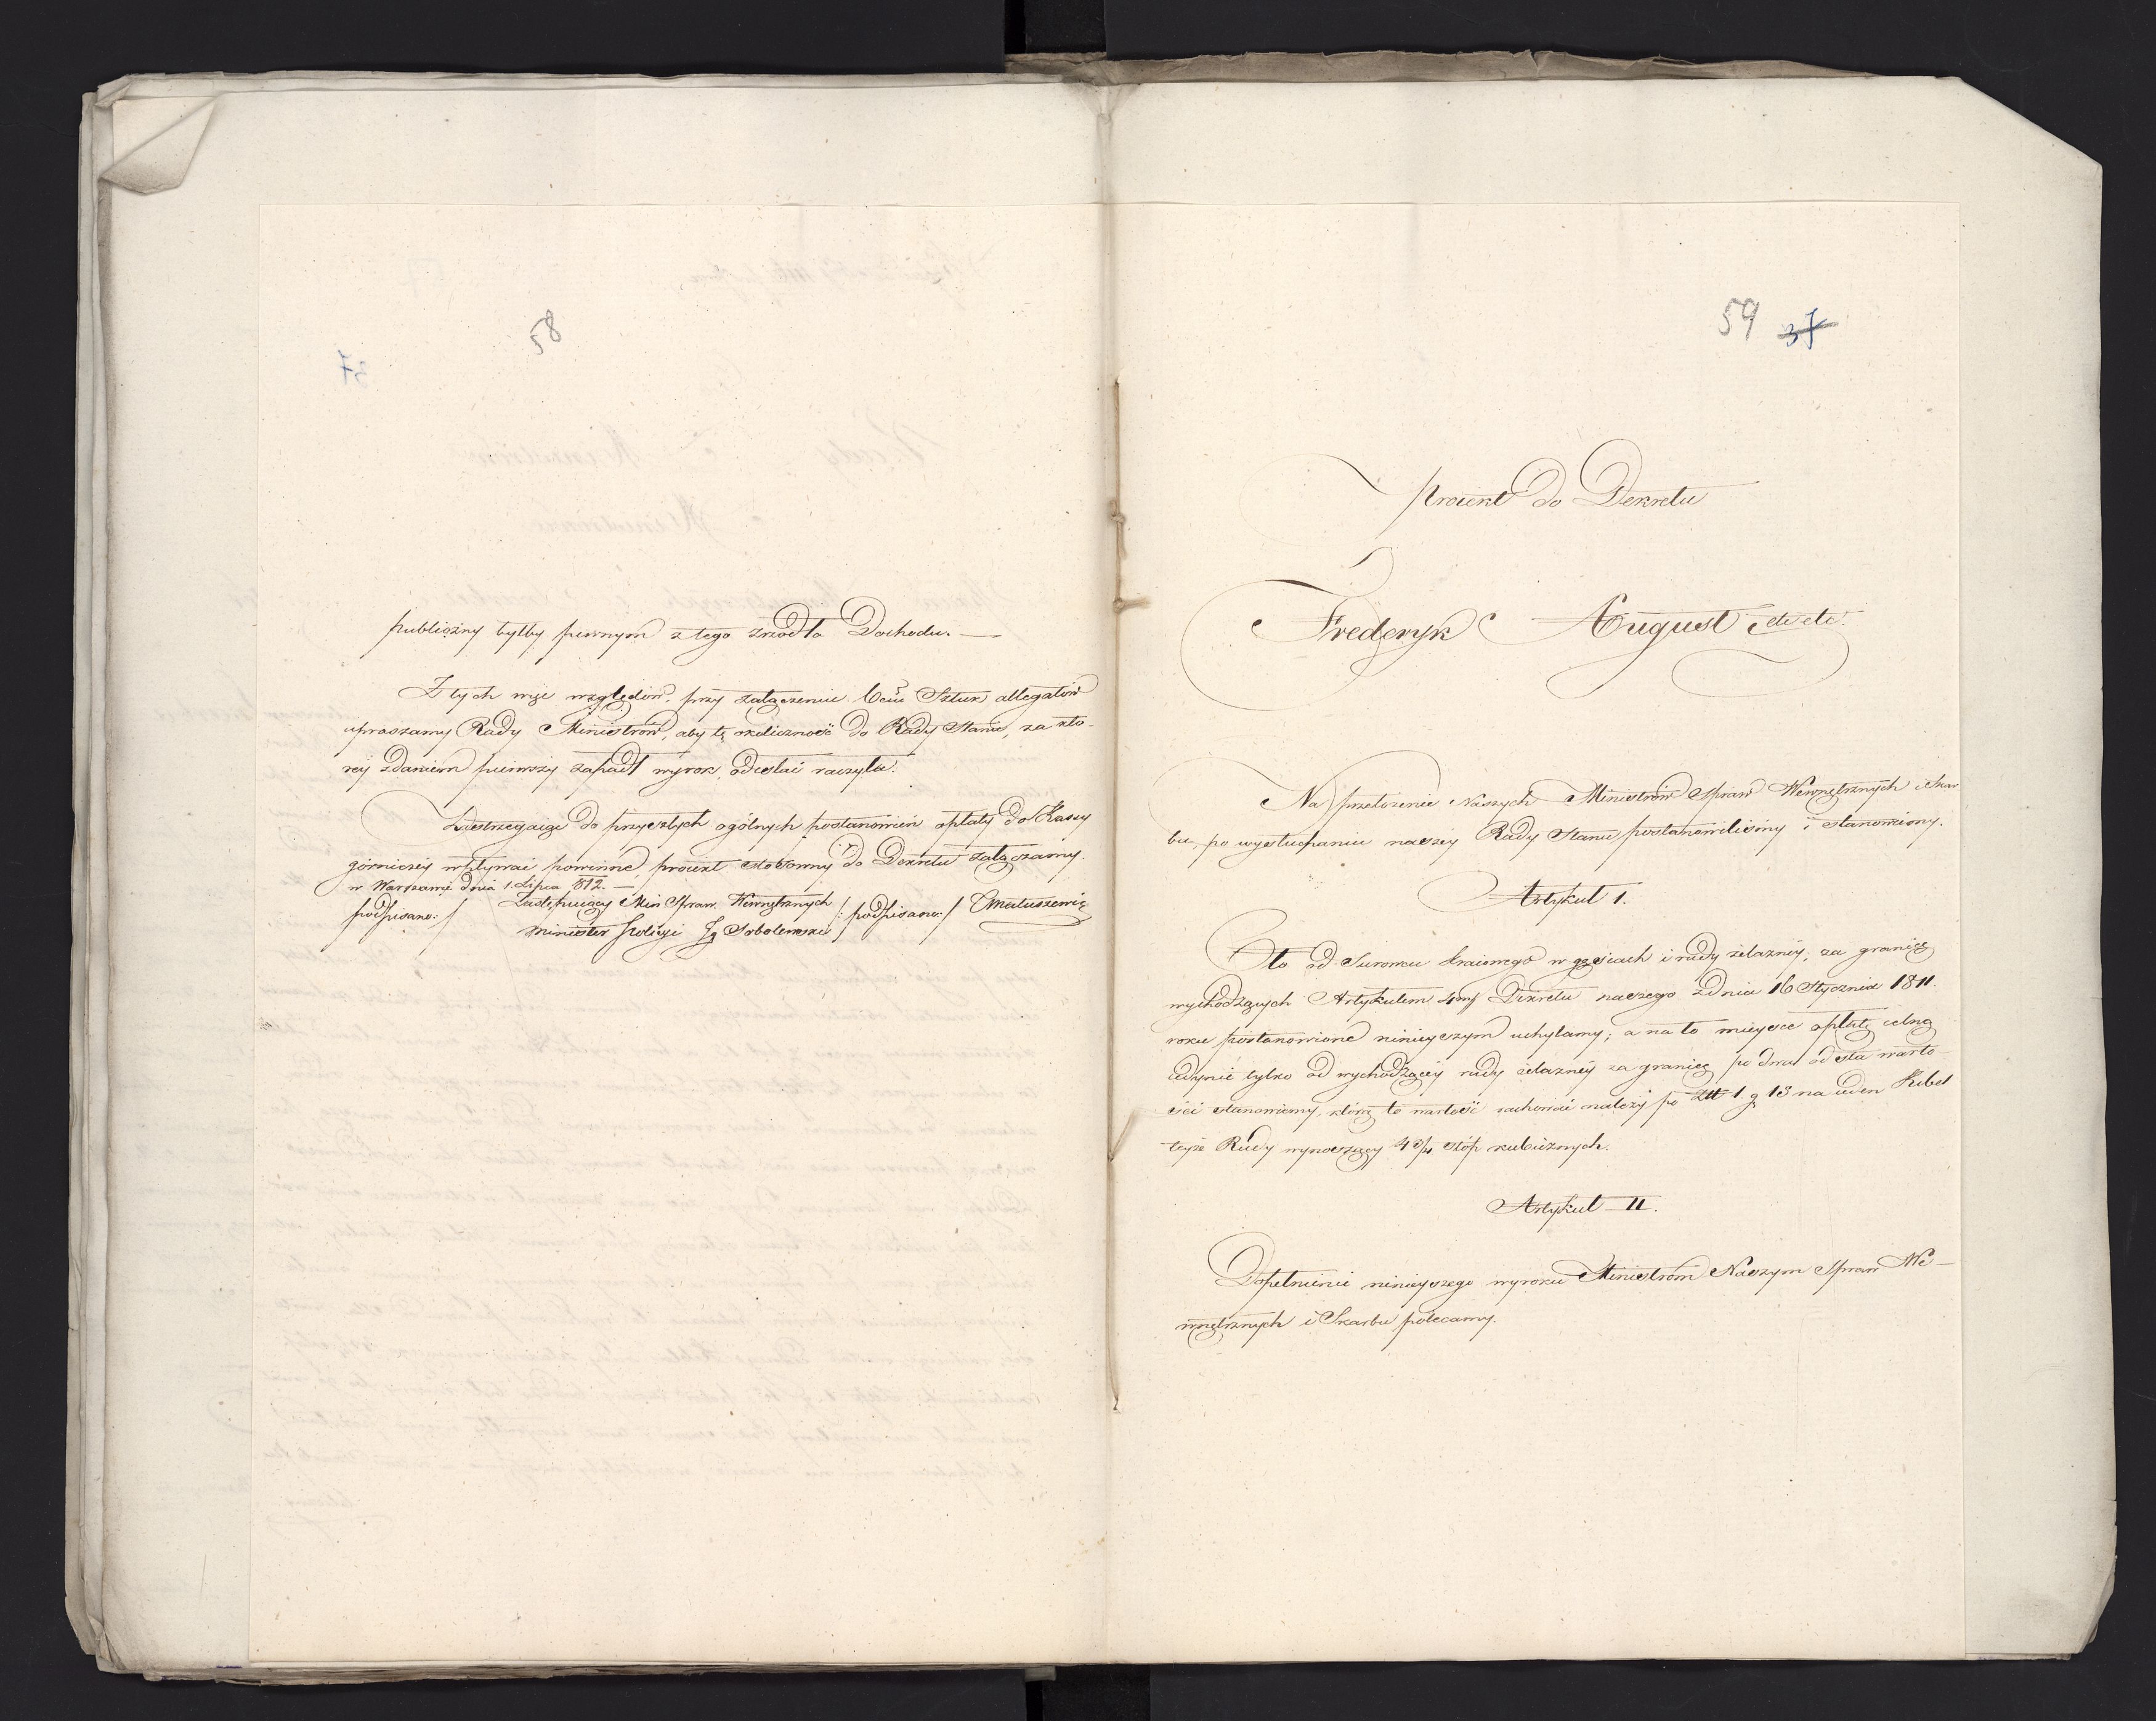 58
publiczny byłby pewnym z tego zrzodła Dochodu. —
Z tych więc względów, przy załączeniu 6ciu Sztuk allegatów
upraszamy Rady Ministrów, aby tę okoliczność do Rady Stanu, za któ-
rey zdaniem pierwszy zapadł wyrok, odesłać raczyła.
Zastrzegaiąc do przyszłych ogólnych postanowień opłaty do Kassy
górniczey wpływać powinne, proiekt stosowny do Dekretu załączamy.
w Warszawie dnia 1. Lipca 812. —
podpisano:/ Zastępuiący Min Spraw. Wewnętrznych /:podpisano:/ Matuszewic
Minister Policyi Ig Sobolewski
59 37
Proiekt do Dekretu
Frederyk August etc etc.
Na przełożenie Naszych Ministrów Spraw Wewnętrznych i Skar
bu, po wysłuchaniu naszey Rady Stanu postanowiliśmy i stanowiemy.
Artykuł 1.
Cło od Surowcu kraiowego w gęsiach i rudy żelazney, za granicę
wychodzących Artykułem 4ym Dekretu naszego z dnia 16 Stycznia 1811.
roku postanowione ninieyszym uchylamy; a na to mieysce opłatę celną
iedynie tylko od wychodzącey rudy żelazney za granicę po dwa od sta warto-
ści stanowiemy, którą to wartość rachować należy po Złt 1. g 13 na ieden Kubel
teyże Rudy wynoszący 4 3/4 stóp kubicznych.
Artykuł II.
Dopełnienie ninieyszego wyroku Ministrom Naszym Spraw We-
wnętrznych i Skarbu polecamy.